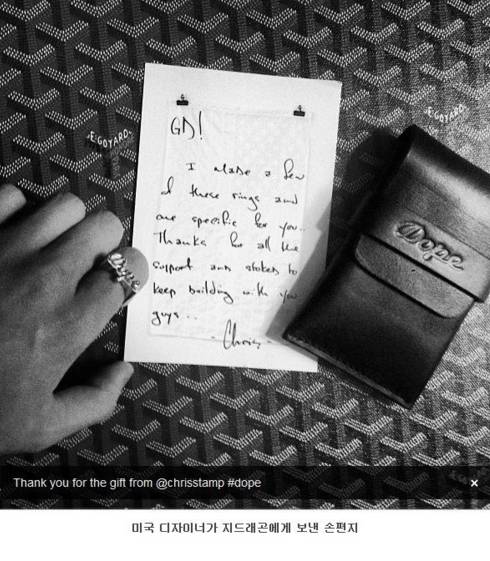 GD!
I made a few
of these rings and
one specific for you..
Thanks for all the
support and stoked to
keep building with you
guys...
- Chris -
Dope
Dope
GOYARD
GOYARD
Thank you for the gift from @chrisstamp #dope
×
미국 디자이너가 지드래곤에게 보낸 손편지